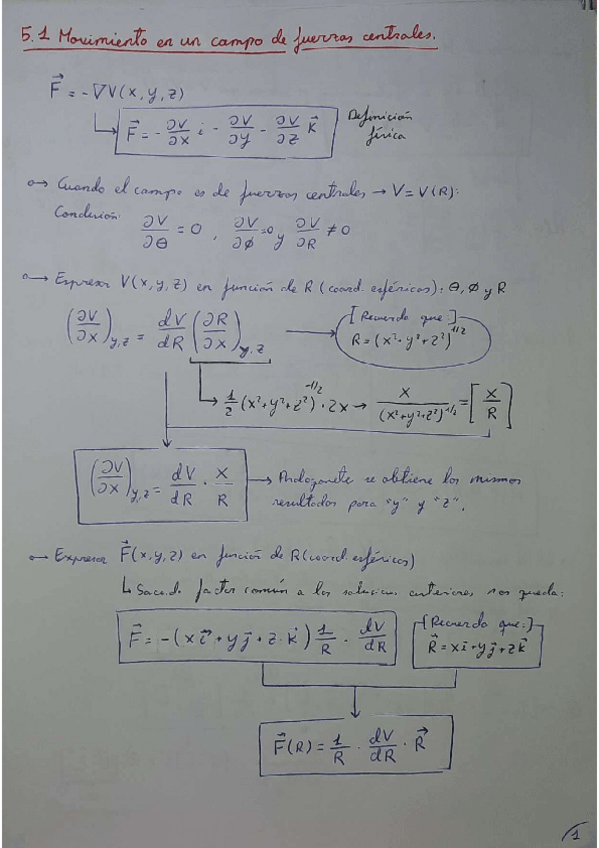 5.1 Movimiento en un campo de fuerzas centrales.
F⃗ = -∇V(x,y,z)
F⃗ = -∂V/∂x i - ∂V/∂y - ∂V/∂z k⃗
Definición
física
o→ Cuando el campo es de fuerzas centrales → V = V(R):
Condición: ∂V/∂θ = 0, ∂V/∂φ = 0 y ∂V/∂R ≠ 0
o→ Expresar V(x,y,z) en función de R (coord. esféricas): θ, φ y R
(∂V/∂x)y,z = dV/dR (∂R/∂x)y,z
[Recuerdo que:]
R = (x²+y²+z²)^1/2
1/2 (x²+y²+z²)^-1/2 · 2x → x/(x²+y²+z²)^-1/2 = [x/R]
(∂V/∂x)y,z = dV/dR · x/R
→ Análogamente se obtiene los mismos
resultados para "y" y "z".
o→ Expresar F⃗(x,y,z) en función de R (coord. esféricas)
↳ Sacando factor común a las anteriores nos queda:
F⃗ = -(x i⃗ + y j⃗ + z·k⃗) 1/R · dV/dR
[Recuerdo que:]
R⃗ = x i⃗ + y j⃗ + z k⃗
F⃗(R) = 1/R · dV/dR · R⃗
1